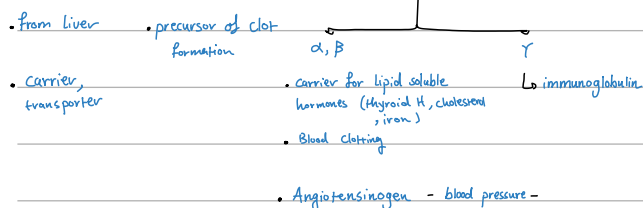 • from liver
• precursor of clot
formation
α, β
γ
• carrier,
transporter
• carrier for lipid soluble
hormones (thyroid H, cholesterol
, iron)
↳ immunoglobulin
• Blood clotting
• Angiotensinogen - blood pressure -